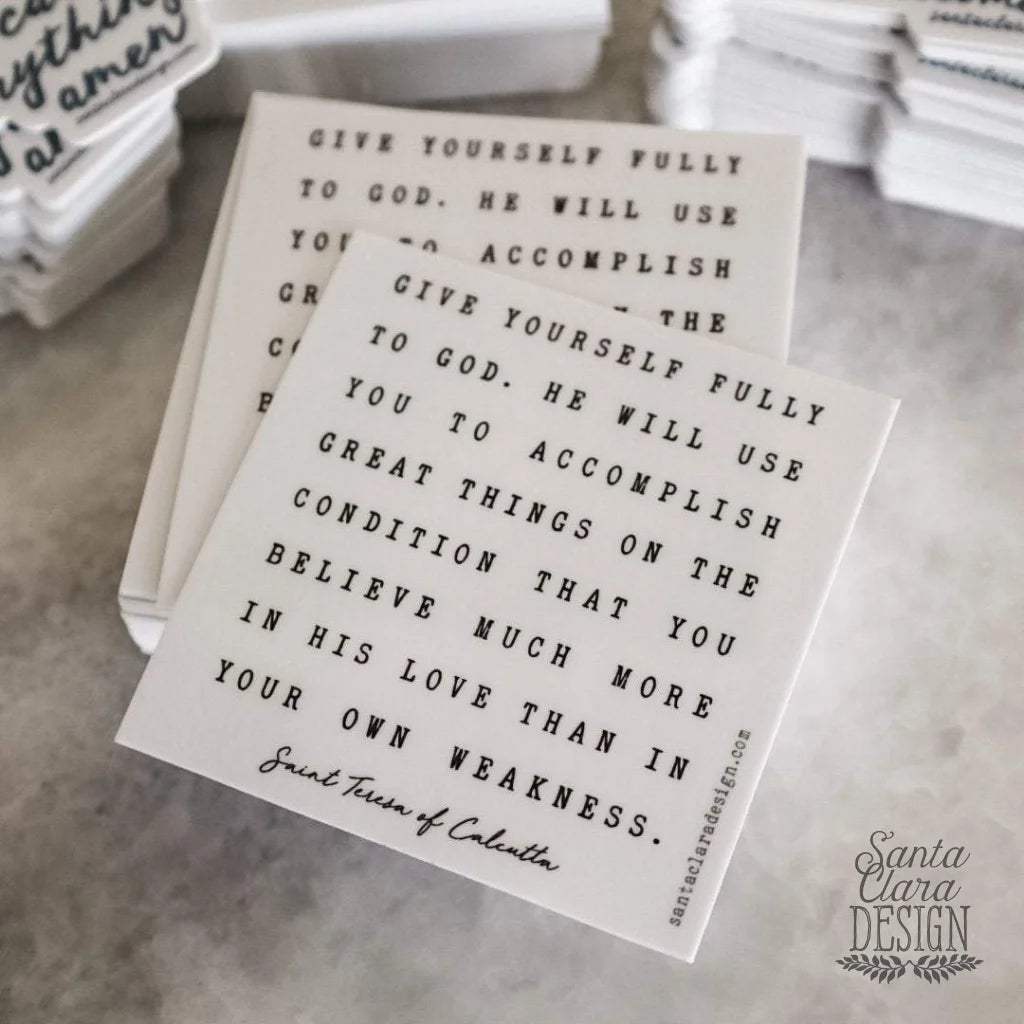 amen
GIVE YOURSELF FULLY
TO GOD. HE WILL USE
ACCOMPLISH
THE
GIVE YOURSELF FULLY
TO GOD. HE WILL USE
YOU TO ACCOMPLISH
GREAT THINGS ON THE
CONDITION THAT YOU
BELIEVE MUCH MORE
IN HIS LOVE THAN IN
YOUR OWN WEAKNESS.
Saint Teresa of Calcutta
santaclaradesign.com
Santa
Clara
DESIGN